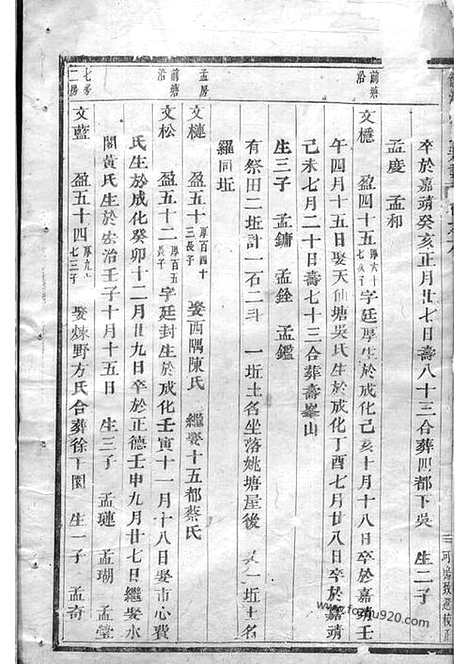 卒於嘉靖癸亥正月廿七日壽八十三合葬四都下吳 生二子
孟慶 孟和
前塘沿
文櫏 盈四十五 字廷厚生於成化己亥十月十八日卒於嘉靖壬
午四月十五日娶天仙塘吳氏生於成化丁酉七月廿八日卒於嘉靖
己未七月二十日壽七十三合葬壽峯山
生三子 孟鏞 孟銓 孟鑑
有祭田二坵計一石二斗 一坵土名坐落姚塘屋後 一坵土名
羅同坵
孟房
文槤 盈五十 厚百四十三長子 娶西隅陳氏 繼娶十五都蔡氏
前塘沿
文松 盈五十二 厚百五 字廷封生於成化壬寅十一月十八日娶市心費
氏生於成化癸卯十二月廿九日卒於正德壬申九月廿七日繼娶水
閣黃氏生於宏治壬子十月十五日 生三子 孟璉 孟瑚 孟瑩
七房二房
文藍 盈五十四 厚九十七三子 娶煉野方氏合葬徐下園 生一子 孟奇
www.fozhu920.com